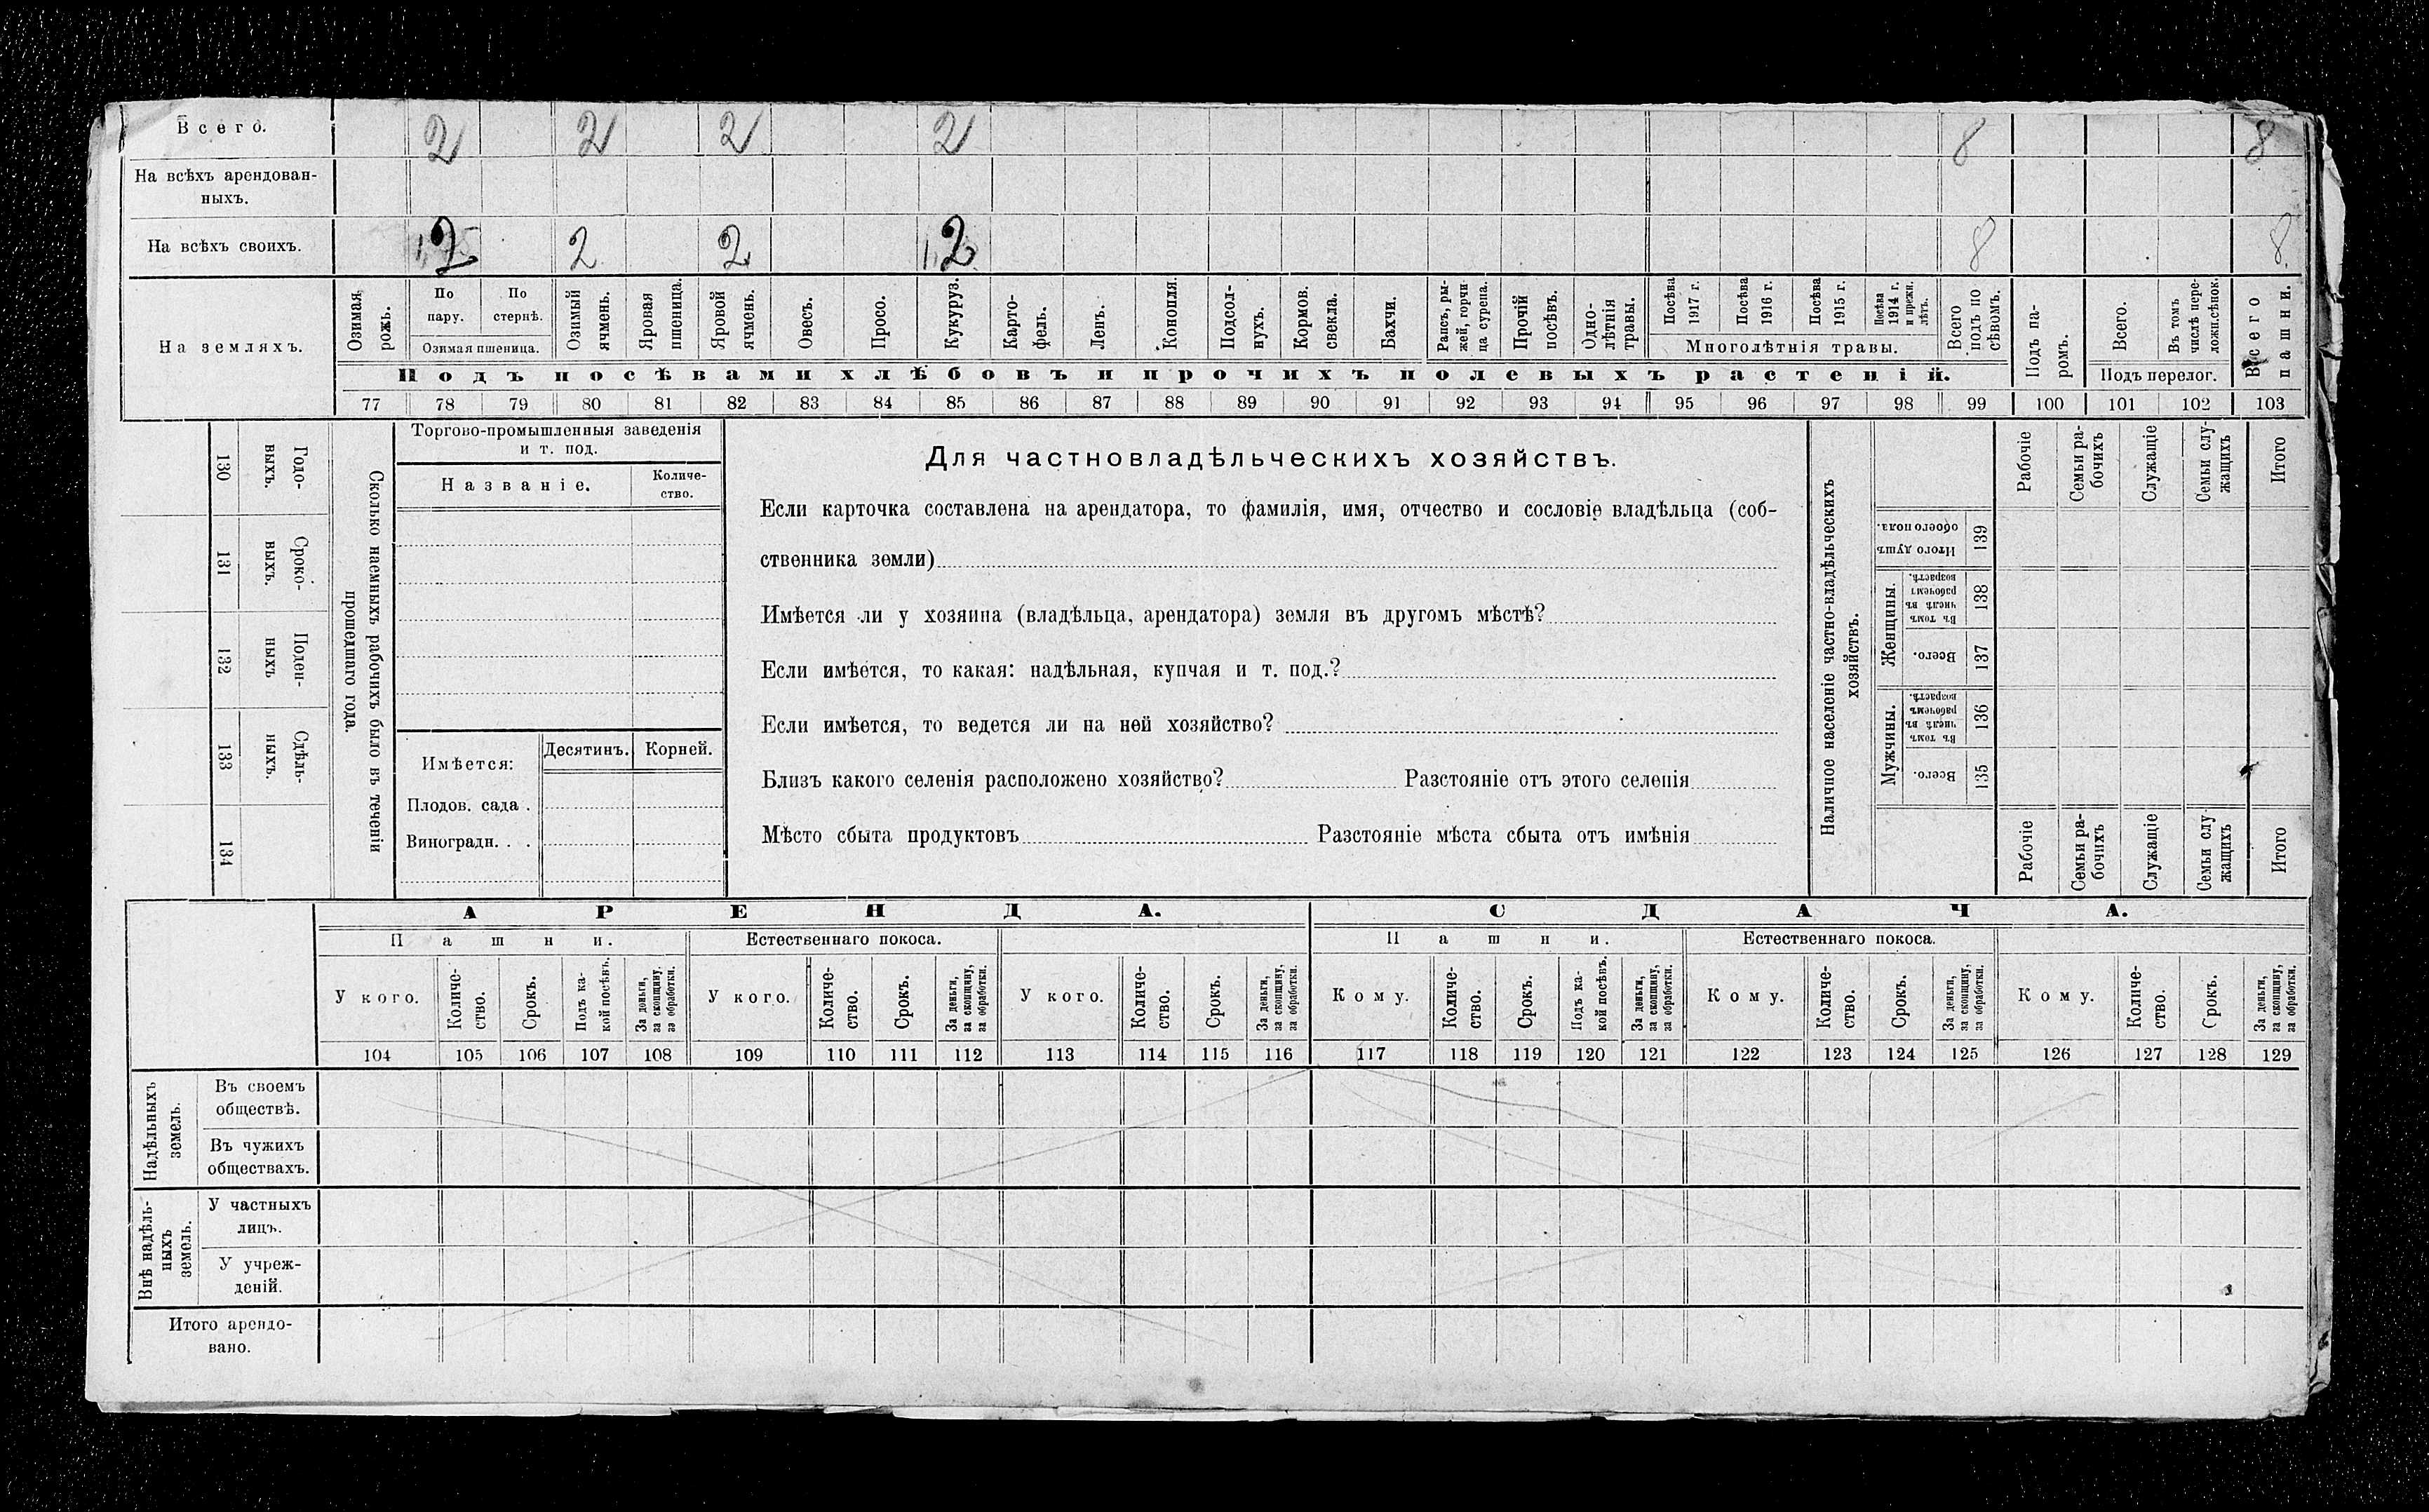 Всего. 2 2 2 2 8 8
На всѣхъ арендован-
ныхъ.
На всѣхъ своихъ. 2 2 2 2 8 8
На земляхъ.
Озимая рожь.
По пару.
По стернѣ.
Озимая пшеница.
Озимый ячмень.
Яровая пшеница.
Яровой ячмень.
Овесъ.
Просо.
Кукуруз.
Карто-
фель.
Ленъ.
Конопля.
Подсол-
нухъ.
Кормов. свекла.
Бахчи.
Рапсъ, ры-
жей, горчи-
ца сурепа.
Прочій посѣвъ.
Одно-
лѣтнія травы.
Посѣва 1917 г.
Посѣва 1916 г.
Посѣва 1915 г.
Посѣва 1914 г. и прежн. лѣтъ.
Многолѣтнія травы.
Всего подъ по
сѣвомъ.
Подъ посѣвами хлѣбовъ и прочихъ полевыхъ растеній.
Подъ па-
ромъ.
Всего.
Въ томъ числѣ пере-
ложн.сѣнок.
Подъ перелог.
Всего пашни.
77 78 79 80 81 82 83 84 85 86 87 88 89 90 91 92 93 94 95 96 97 98 99 100 101 102 103
130 Годо-
выхъ.
131 Сроко-
выхъ.
132 Поден-
ныхъ
133 Сдѣль-
ныхъ.
134
Сколько наемныхъ рабочихъ было въ теченіи
прошедшаго года.
Торгово-промышленныя заведенія
и т. под.
Названіе.
Количе-
ство.
Имѣется:
Десятинъ.
Корней.
Плодов. сада .
Виноградн. . .
Для частновладѣльческихъ хозяйствъ.
Если карточка составлена на арендатора, то фамилія, имя, отчество и сословіе владѣльца (соб-
ственника земли)
Имѣется ли у хозяина (владѣльца, арендатора) земля въ другомъ мѣстѣ?
Если имѣется, то какая: надѣльная, купчая и т. под.?
Если имѣется, то ведется ли на ней хозяйство?
Близъ какого селенія расположено хозяйство? Разстояніе отъ этого селенія
Мѣсто сбыта продуктовъ Разстояніе мѣста сбыта отъ имѣнія
Наличное населеніе частно-владѣльческихъ
хозяйствъ.
Рабочіе
Семьи ра-
бочихъ
Служащіе
Семьи слу-
жащихъ
Итого
Итого душъ
обоего пола.
139
Женщины.
Въ томъ числѣ въ рабочемъ возрастѣ.
138
Всего.
137
Мужчины.
Въ томъ числѣ въ рабочемъ возрастѣ.
136
Всего.
135
Рабочіе
Семьи ра-
бочихъ
Служащіе
Семьи слу
жащихъ
Итого
АРЕНДА.
СДАЧА.
Пашни.
Естественнаго покоса.
Пашни.
Естественнаго покоса.
У кого.
Количе-
ство.
Срокъ.
Подъ ка-
кой посѣвъ.
За деньги, за скопщину, за обработки.
У кого.
Количе-
ство.
Срокъ.
За деньги, за скопщину, за обработки.
У кого.
Количе-
ство.
Срокъ.
За деньги, за скопщину, за обработки.
Кому.
Количе-
ство.
Срокъ.
Подъ ка-
кой посѣвъ.
За деньги, за скопщину, за обработки.
Кому.
Количе-
ство.
Срокъ.
За деньги, за скопщину, за обработки.
Кому.
Количе-
ство.
Срокъ.
За деньги, за скопщину, за обработки.
104 105 106 107 108 109 110 111 112 113 114 115 116 117 118 119 120 121 122 123 124 125 126 127 128 129
Надѣльныхъ
земель.
Въ своемъ
обществѣ.
Въ чужихъ
обществахъ.
Внѣ надѣль-
ныхъ
земель.
У частныхъ
лицъ.
У учреж-
деній.
Итого арендо-
вано.